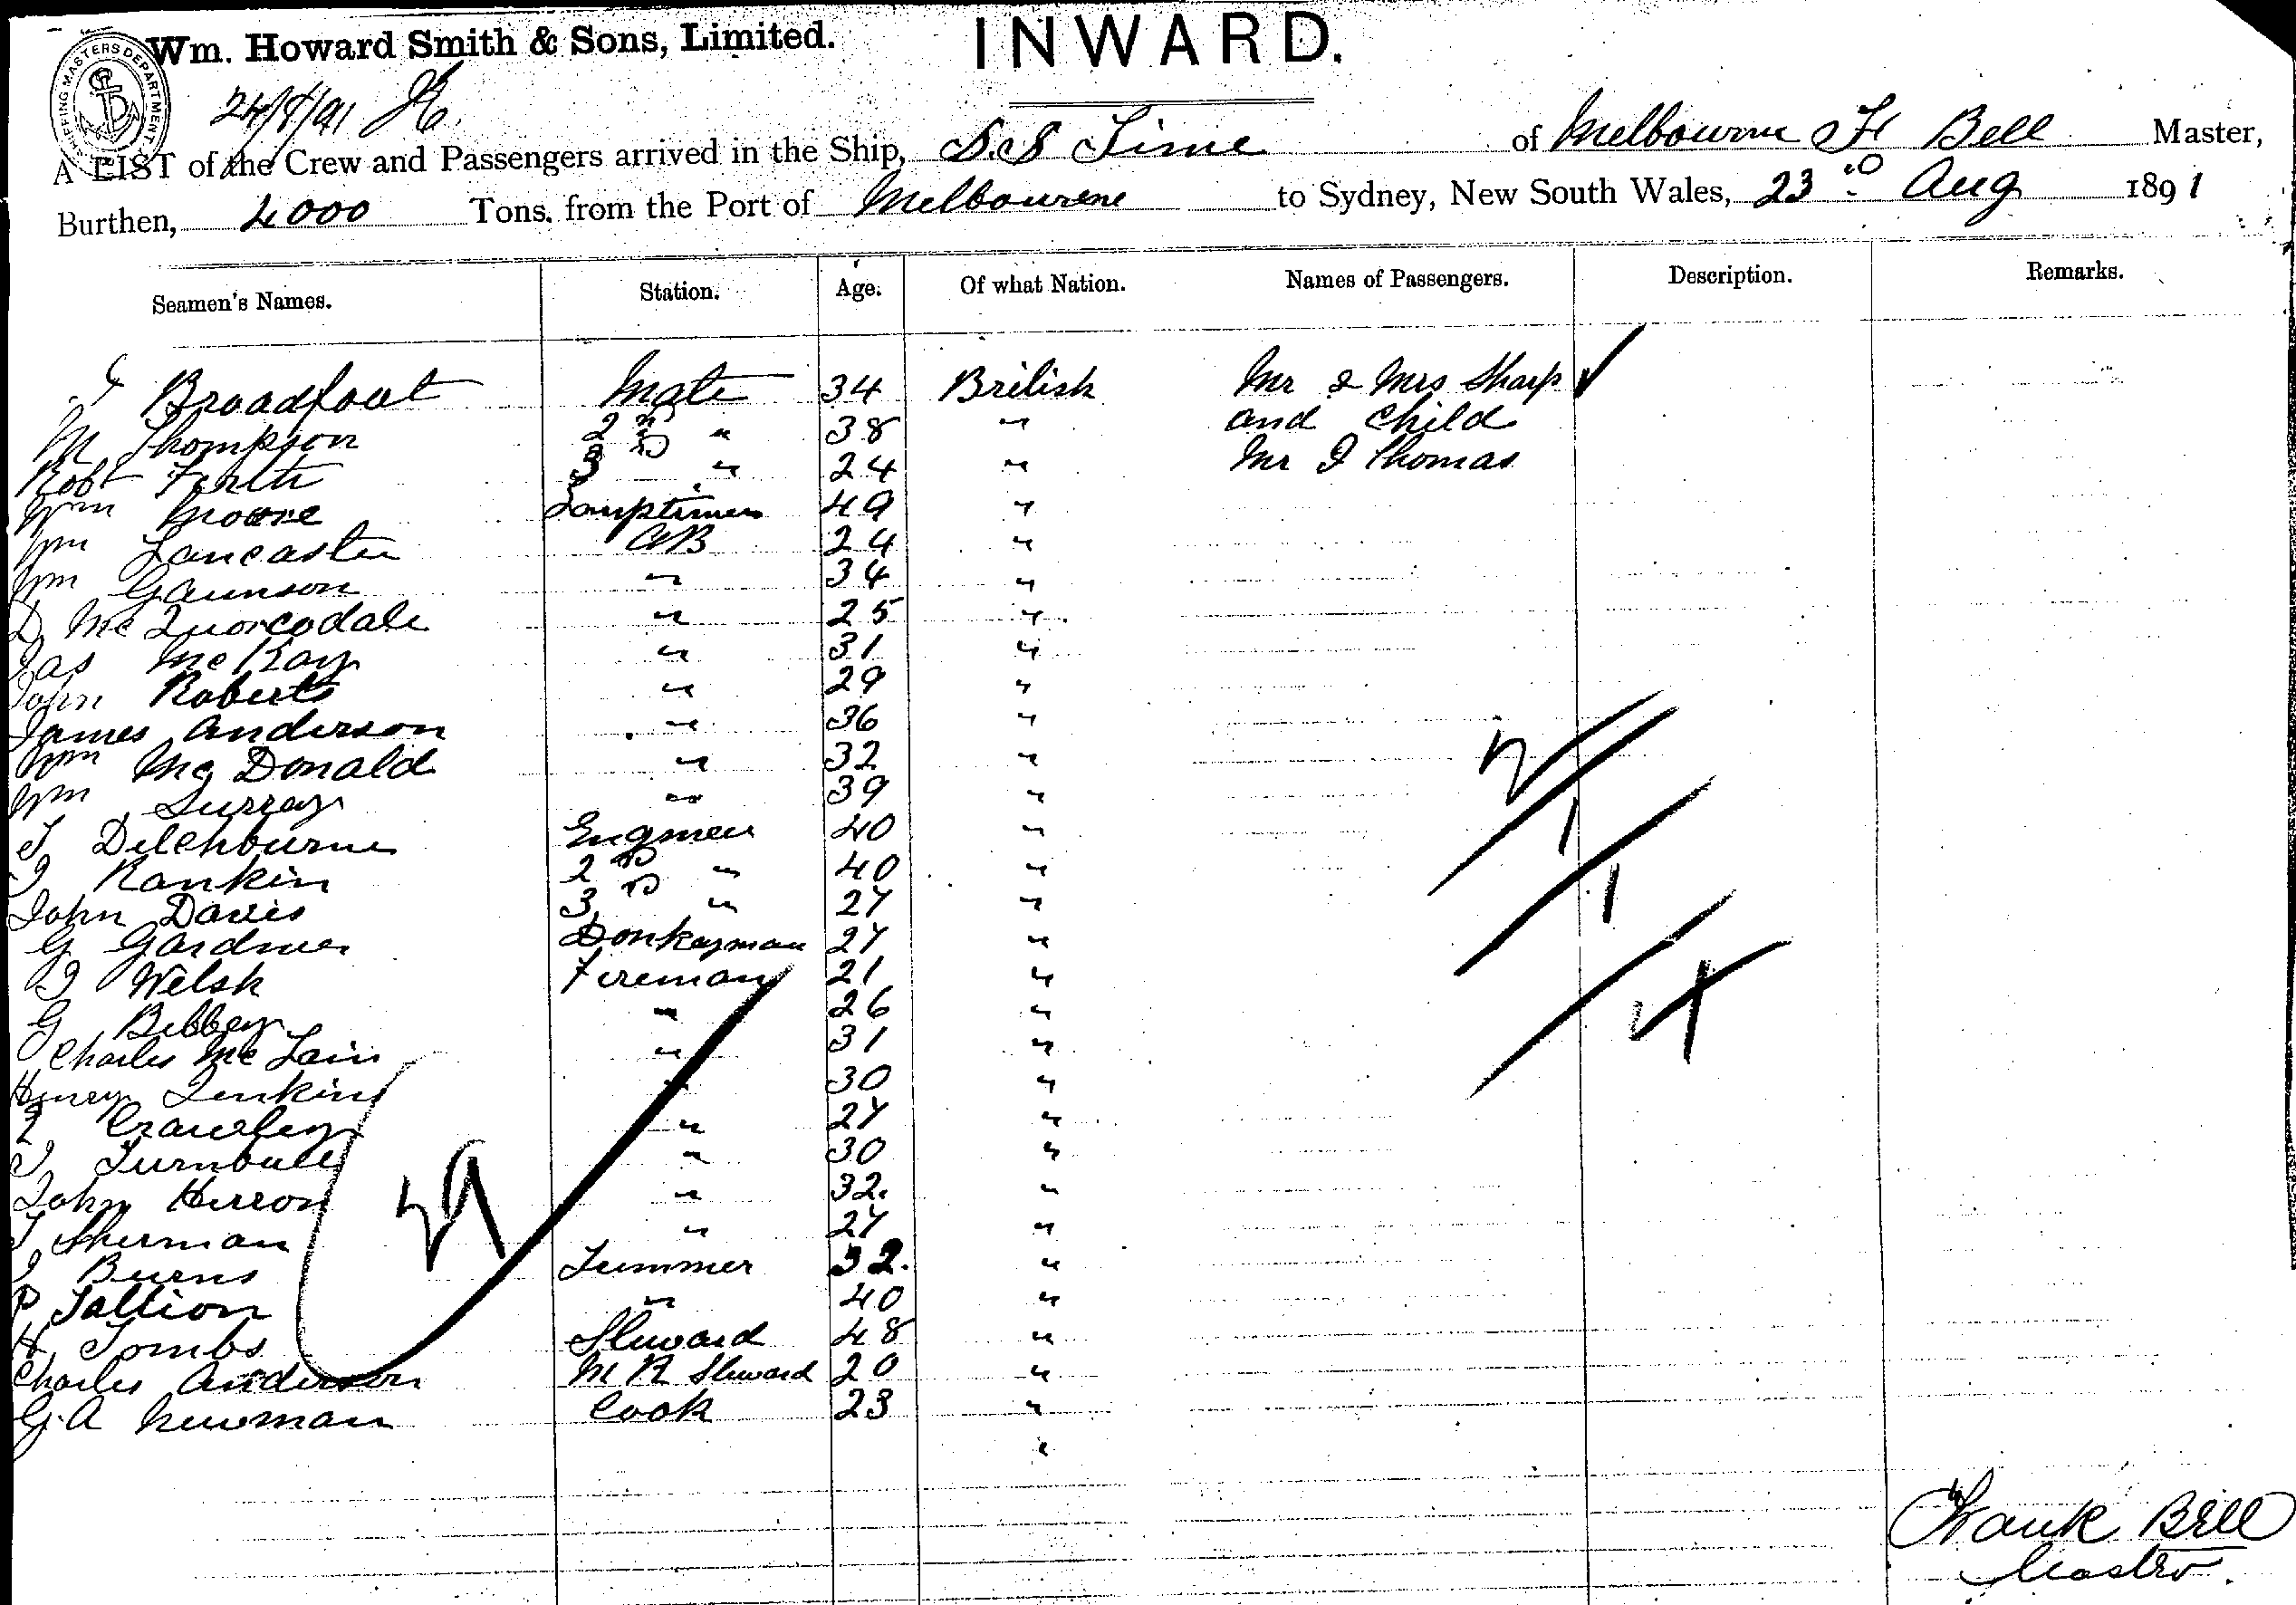 Wm. Howard Smith & Sons, Limited. INWARD.
SHIPPING MASTERS DEPARTMENT
24/8/91
A LIST of the Crew and Passengers arrived in the Ship, S.S Time of Melbourne F Bell Master,
Burthen, 4000 Tons. from the Port of Melbourne to Sydney, New South Wales, 23rd Aug 1891
Seamen's Names. Station. Age. Of what Nation. Names of Passengers. Description. Remarks.
Broadfoot Mate 34 British Mr & Mrs Sharp
M Thompson 2nd " 38 " and Child
Robt Firth 3 " 24 " Mr J Thomas
Wm Moore Lamptrimer 49 "
Wm Lancaster AB 24 "
Wm Gaunson " 34 "
D McQuorcodale " 25 "
Jas McKay " 31 "
John Roberts " 29 "
James Anderson " 36 "
Wm McDonald " 32 "
Wm Surray " 39 "
T Delchburne Engineer 40 "
J Rankin 2nd " 40 "
John Davis 3rd " 27 "
G Gardner Donkeyman 27 "
J Welsh Fireman 21 "
G Bibbey " 26 "
Charles McLain " 31 "
Henry Jenkins " 30 "
Crawley " 27 "
J Turnbull " 30 "
John Herron " 32. "
T Sherman " 27 "
J Burns Trimmer 32. "
P Tallion " 40 "
H Tombs Steward 48 "
Charles Anderson M R Steward 20 "
G.A Newman Cook 23 "
"
Frank Bell
Master.